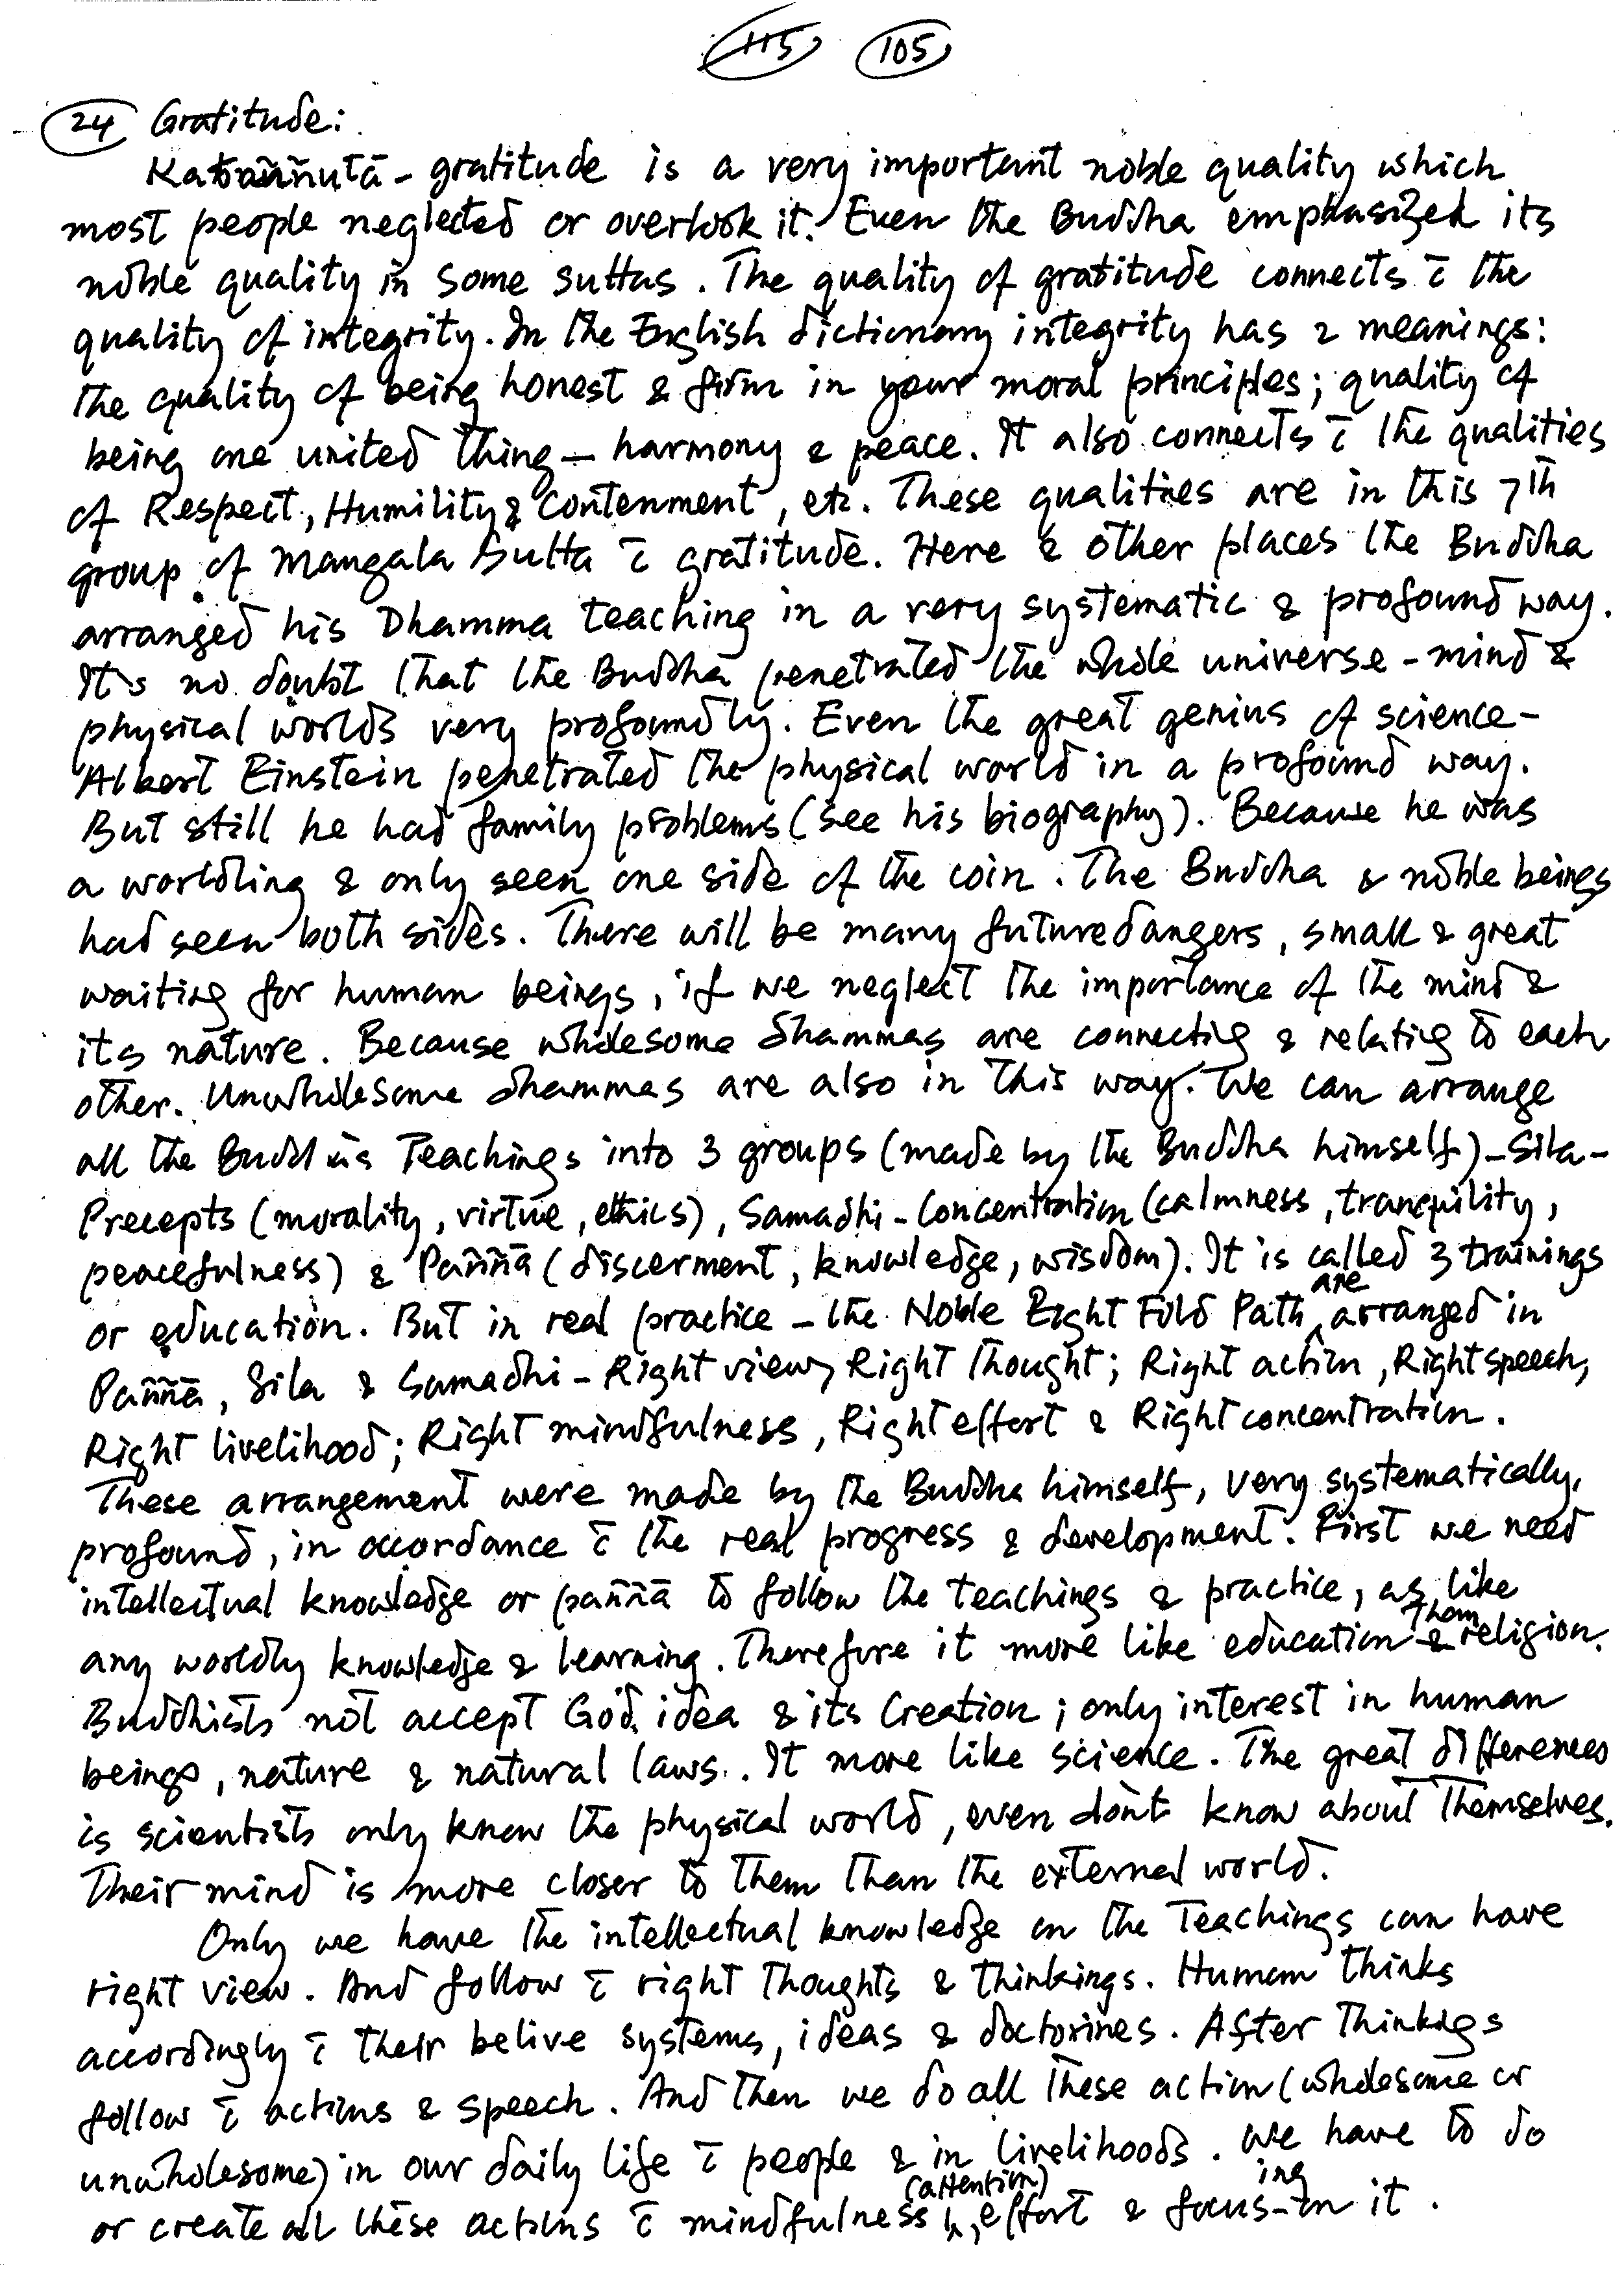 115 105
24 Gratitude:
Kataññutā - gratitude is a very important noble quality which
most people neglected or overlook it. Even the Buddha emphasized its
noble quality in some suttas. The quality of gratitude connects c̄ the
quality of integrity. In the English dictionary integrity has 2 meanings:
the quality of being honest & firm in your moral principles; quality of
being one united thing — harmony & peace. It also connects c̄ the qualities
of Respect, Humility & Contenment, etc. These qualities are in this 7th
group of Mangala Sutta c̄ gratitude. Here & other places the Buddha
arranged his Dhamma teaching in a very systematic & profound way.
It's no doubt that the Buddha penetrated the whole universe - mind &
physical worlds very profoundly. Even the great genius of science -
Albert Einstein penetrated the physical world in a profound way.
But still he had family problems (see his biography). Because he was
a worldling & only seen one side of the coin. The Buddha & noble beings
had seen both sides. There will be many future dangers, small & great
waiting for human beings, if we neglect the importance of the mind &
its nature. Because wholesome dhammas are connecting & relating to each
other. Unwholesome dhammas are also in this way. We can arrange
all the Buddha's Teachings into 3 groups (made by the Buddha himself) - Sila -
Precepts (morality, virtue, ethics), Samadhi - Concentration (calmness, tranquility,
peacefulness) & Paññā (discernment, knowledge, wisdom). It is called 3 trainings
or education. But in real practice - the Noble Eight Fold Path are arranged in
Paññā, Sila & Samadhi - Right view, Right Thought; Right action, Right speech,
Right livelihood; Right mindfulness, Right effort & Right concentration.
These arrangement were made by the Buddha himself, very systematically,
profound, in accordance c̄ the real progress & development. First we need
intellectual knowledge or paññā to follow the teachings & practice, as like
any worldly knowledge & learning. Therefore it more like education than religion.
Buddhists not accept God idea & its Creation; only interest in human
beings, nature & natural laws. It more like science. The great differences
is scientists only know the physical world, even don't know about themselves.
Their mind is more closer to them than the external world.
Only we have the intellectual knowledge on the Teachings can have
right view. And follow c̄ right thoughts & thinkings. Human thinks
accordingly c̄ their belive systems, ideas & doctorines. After thinkings
follow c̄ actions & speech. And then we do all these action (wholesome or
unwholesome) in our daily life c̄ people & in livelihoods. We have to do
or create all these actions c̄ mindfulness (attention), effort & focusing on it.